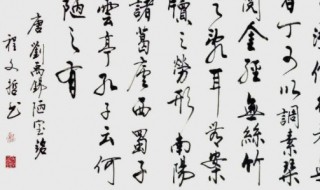 白丁可以調素琴
閱金經無絲竹
之亂耳無案
牘之勞形南陽
諸葛廬西蜀子
雲亭孔子云何
陋之有
唐劉禹錫陋室銘
程文哲书